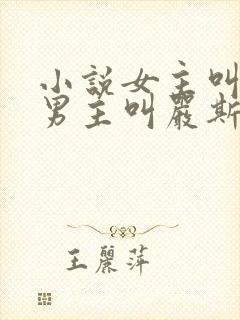 小說女主叫
男主叫嚴斯
王麗萍